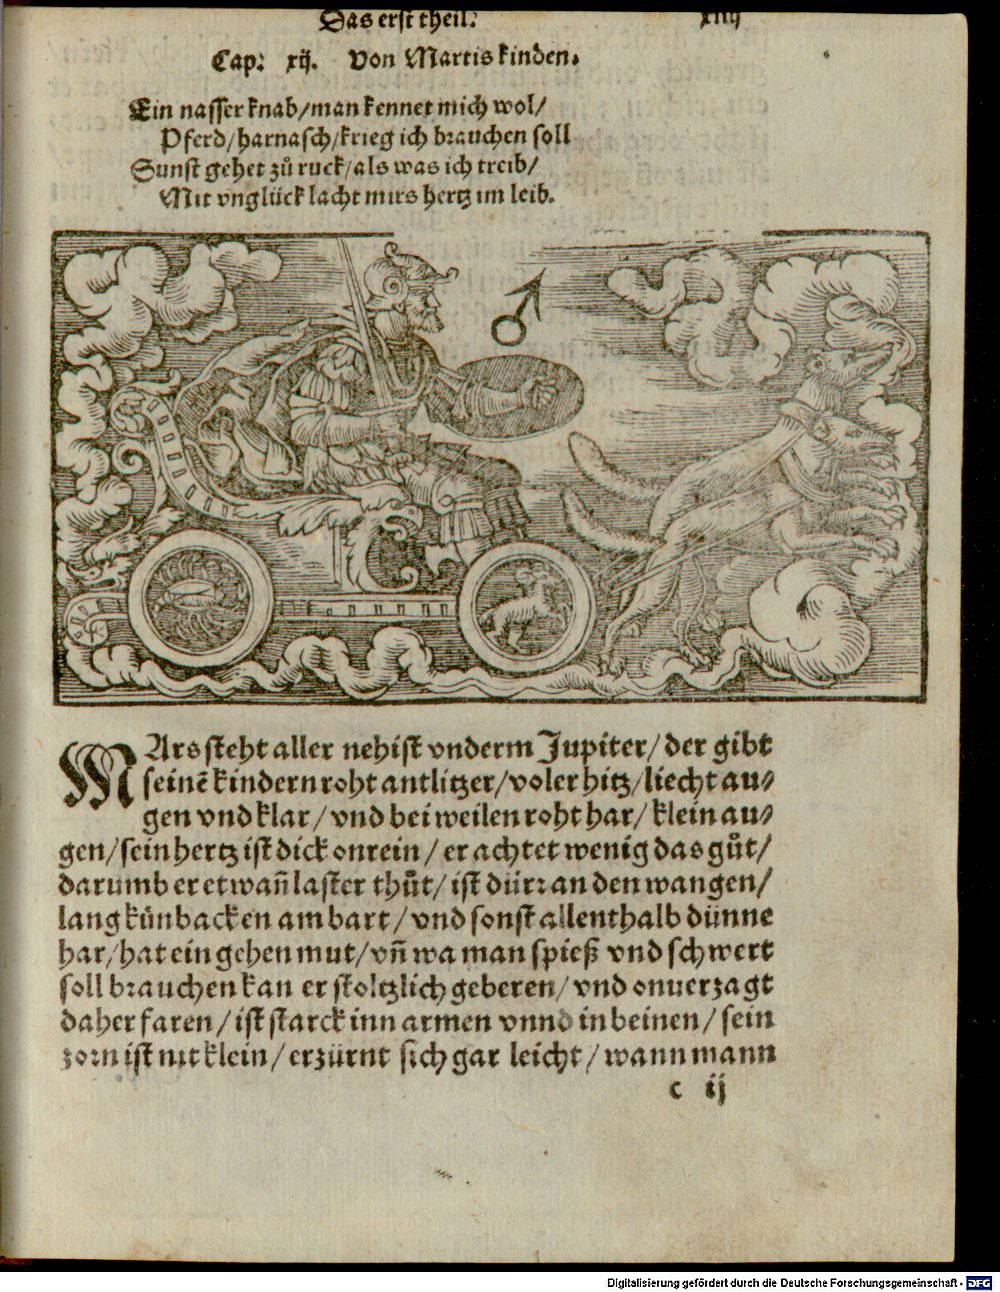 Das erst theil. xiiij
Cap. xij. Von Martis kinden.
Ein nasser knab/man kennet mich wol/
Pferd/harnasch/krieg ich brauchen soll
Sunst gehet zů ruck/als was ich treib/
Mit vnglück lacht mirs hertz im leib.
♂
MArs steht aller nehist vnderm Jupiter/der gibt
seinẽ kindern roht antlitzer/voler hitz/liecht au⸗
gen vnd klar/vnd bei weilen roht har/klein au⸗
gen/sein hertz ist dick onrein/er achtet wenig das gůt/
darumb er etwañ laster thůt/ist dürr an den wangen/
lang künbacken am bart/vnd sonst allenthalb dünne
har/hat ein gehen mut/vñ wa man spieß vnd schwert
soll brauchen kan er stoltzlich geberen/vnd onuerzagt
daher faren/ist starck inn armen vnnd in beinen/sein
zorn ist nit klein/erzürnt sich gar leicht/wann mann
c ij
Digitalisierung gefördert durch die Deutsche Forschungsgemeinschaft - DFG